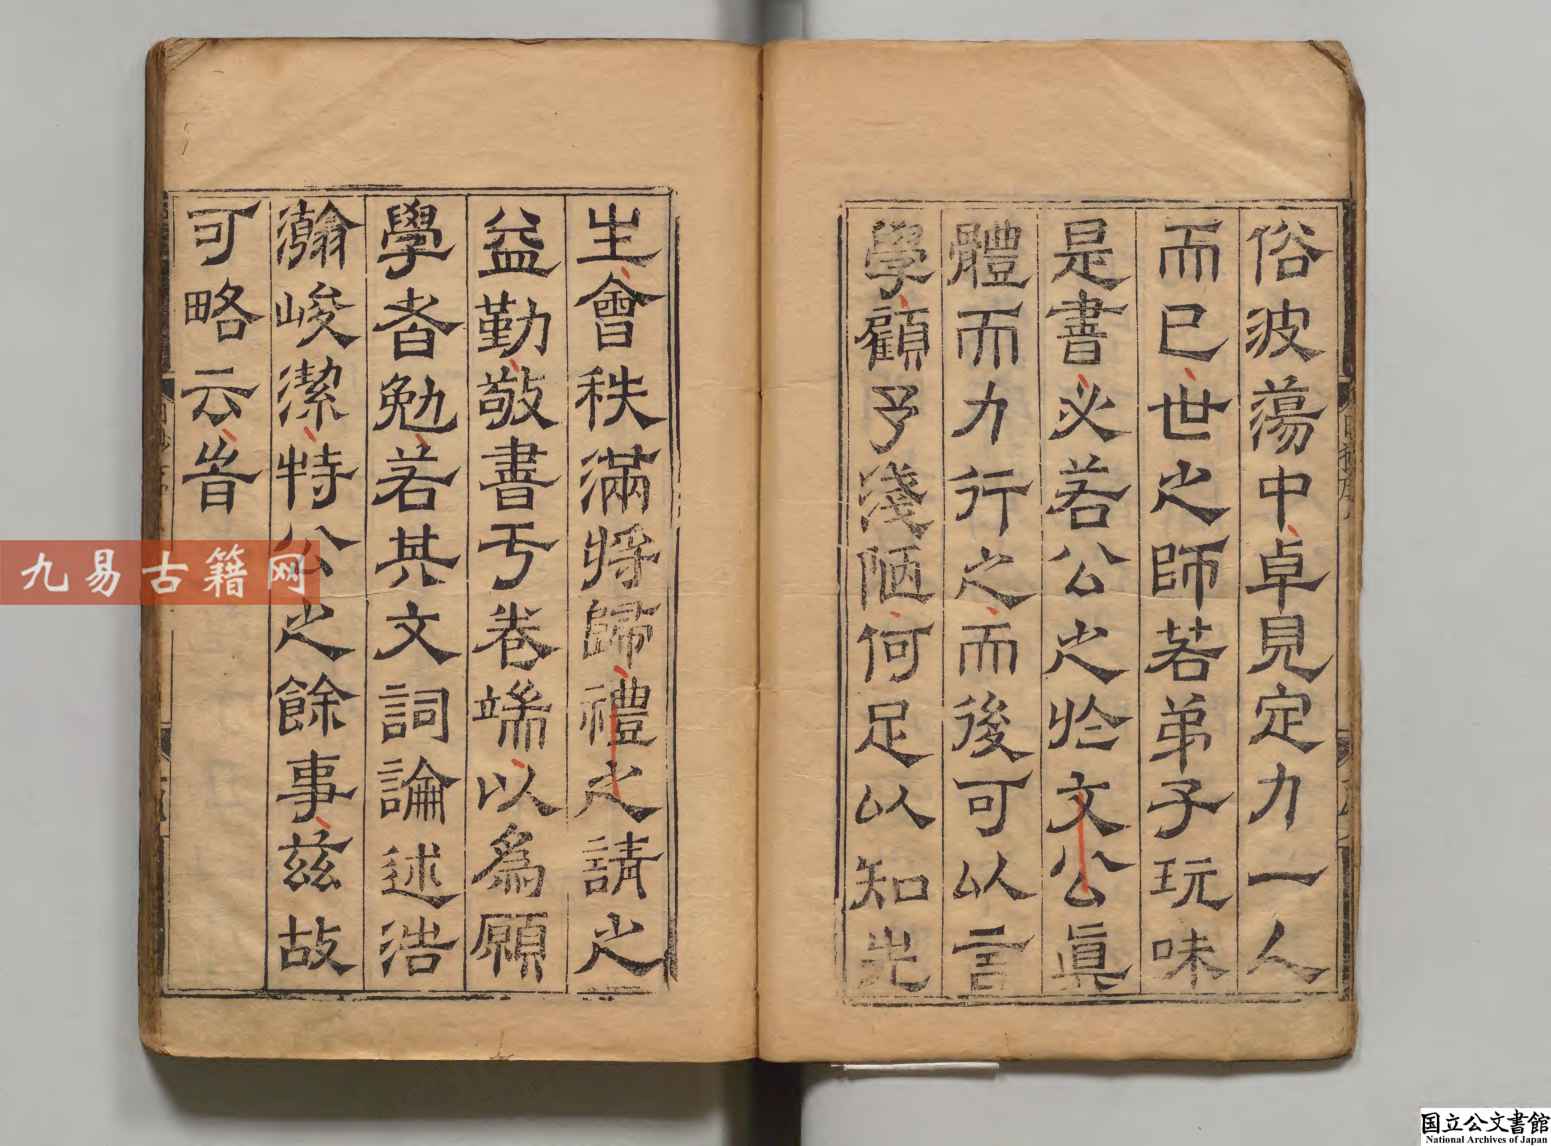 俗波蕩中卓見定力一人
而已世之師若弟子玩味
是書必若公之於文公眞
體而力行之而後可以言
學顧予淺陋何足以知先
生會秩滿將歸禮之請之
益勤敬書于卷端以爲願
學者勉若其文詞論述浩
瀚峻潔特公之餘事茲故
可略云旹
九易古籍网
国立公文書館
National Archives of Japan